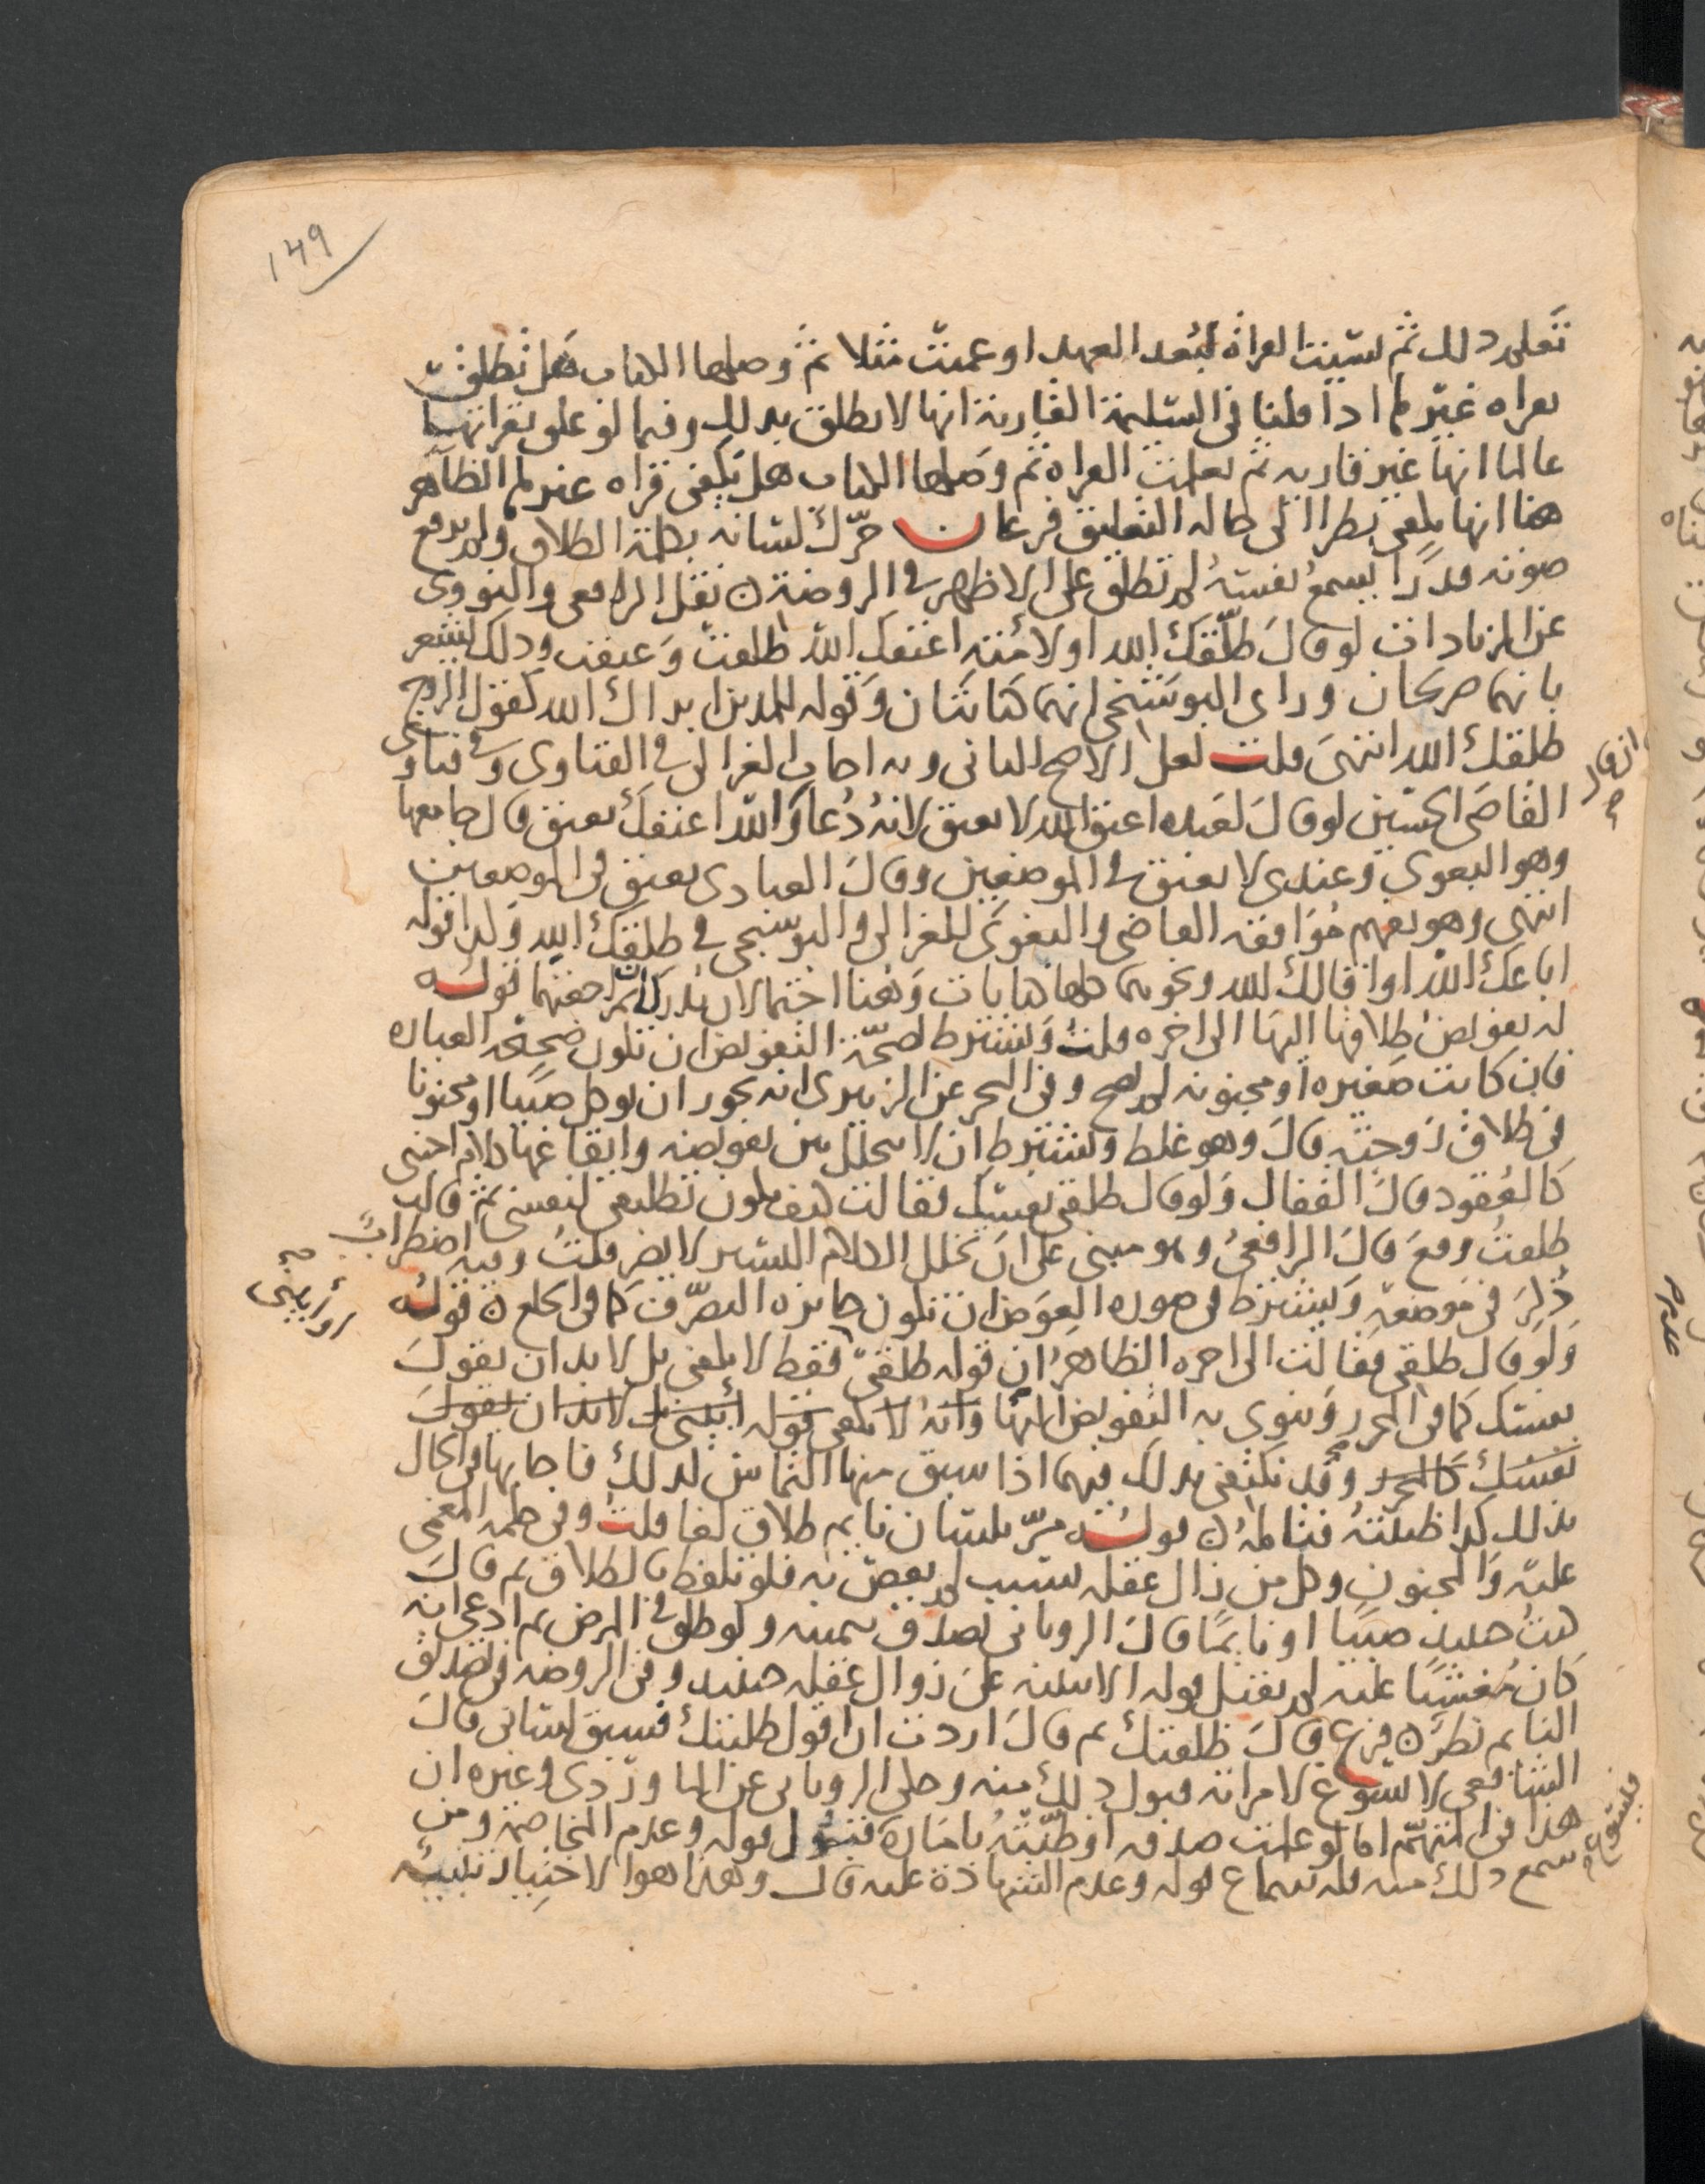 149
تعلم ذلك ثم نسيت القراة لبعد العهد او عميت مثلا ثم وصلها الكتاب هل تطلق
بقراه غيرها اذا قلنا في السليمة القارية انها لا تطلق بذلك وفيما لو علق بقراتها
عالما انها غير قاريه ثم تعلمت القراه ثم وصلها الكتاب هل تكفي قراه غيرها الظاهر
هنا انها تكفي نظرا الى حاله التعليق فرعان حرّك لسانه بكلمة الطلاق ولم يرفع
صوته قدرًا يسمعُ نفسهُ لم تطلق على الاظهر في الروضة ن نقل الرافعي والنووى
عن الزيادات لو قال طلّقك الله او لامته اعتقك الله طلقت وعتقت وذلك يشعر
بانهما صريحان وراى البوشنجى انهما كنايتان وقوله للمديزا براك الله كقول الزوج
طلقك الله انتهى قلت لعل الاصح الثانى وبه اجاب الغزالى في الفتاوى وفي فتاوى
القاضي الحسين لو قال لعبده اعتق الله لا يعتق لانهُ دُعا والله اعتقك يعتق قال جامعها
وهو البغوى وعندى لا يعتق في الموضعين وقال العبادى يعتق في الموضعين
انتهى وهو يفهم مُوافقه القاضي والبغوى للغزالى والبوشنجى في طلقك الله ولذا قوله
اباعك الله او اقالك الله ونحوهما كلها كنايات وهنا احتمالان يدركان مراجعتهما قوله
له تفويض طلاقها اليها الى اخره قلت ويشترط لصحّة التفويض ان تكون صحيحه العباره
فان كانت صغيره او مجنونه لم يصح وفى البحر عن الزبيرى انه يجوز ان يوكل صبيا او مجنونا
في طلاق زوجته قال وهو غلط ويشترط ان لا يتخلل بين تفويضه وايقاعها كلام اجنبى
كالعقود قال القفال ولو قال طلقى نفسك فقالت كيف يكون تطليقى لنفسى ثم قالت
طلقتُ وقع قال الرافعىُ وهو مبنى على ان تخلل الكلام اليسير لا يضر قلتُ وفيه اضطرابٌ
ذُكِرَ في موضعهِ ويشترط في صوره العوض ان تكون جايزه التصرّف كما في الخلع ن قوله
ولو قال طلقى فقالت الى اخره الظاهرُ ان قوله طلقى فقط لا يكفى بل لا بد ان يقول
نفسك كما فى المحرر وينوى به التفويض اليها وانهُ لا يكفى قوله ابينى بل لا بد ان يقول
نفسك كالمحرر وقد نكتفى بذلك فيما اذا سبق منها التماسٌ لذلك فاجابها في الحال
بذلك كذا ظننتهُ فتاملهُ ن قوله مرّ بلسان نايم طلاق لغا قلت وفى حكمه المغمى
عليه والمجنون وكل من زال عقله بسبب لم يعص به فلو تلفظ بالطلاق ثم قال
كنتُ حينيذ صبيا او نايمًا قال الرويانى يُصدق بيمينه ولو طلق في المرض ثم ادعى انه
كان مغشيًا عليه لم يقبل قوله الا ببينه على زوال عقله حينيذ وفى الروضه في تصديق
النايم نظرٌ ن فرع قال طلقتك ثم قال اردت ان اقول طلبتك فسبق لسانى قال
الشافعى لا يسوغ لامراته قبول ذلك منه وحكى الرويانى عن الماوردى وغيره ان
هذا في المتهم اما لو علمت صدقه او ظنّتهُ بامارة قبول قوله وعدم المخاصمه ومن
سمع ذلك منه فله سماع قوله وعدم الشهادة عليه قال وهذا هو الاختيار تنبيه